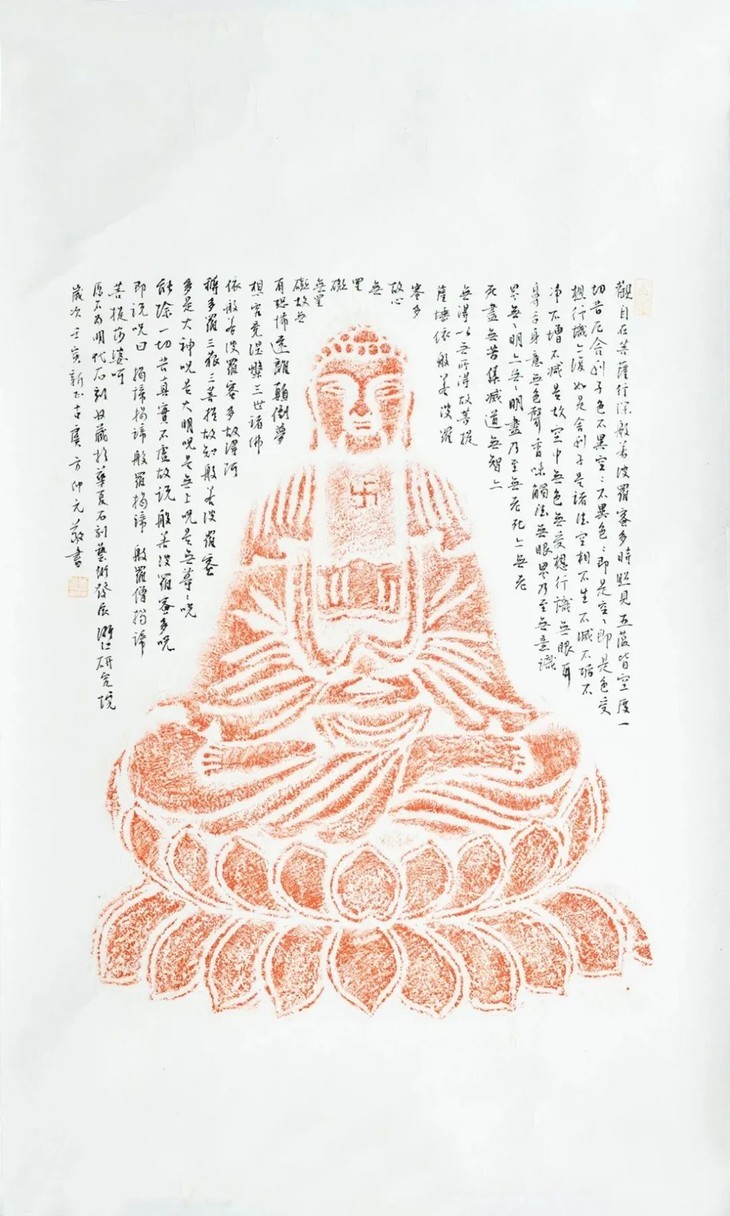 觀自在菩薩行深般若波羅蜜多時照見五蘊皆空度一
切苦厄舍利子色不異空〻不異色〻即是空〻即是色受
想行識亦復如是舍利子是諸法空相不生不滅不垢不
淨不增不減是故空中無色無受想行識無眼耳
鼻舌身意無色聲香味觸法無眼界乃至無意識
界無〻明亦無〻明盡乃至無老死亦無老
死盡無苦集滅道無智亦
無得以無所得故菩提
薩埵依般若波羅
蜜多
故心
無
罣
礙
無罣
礙故無
有恐怖遠離顛倒夢
想究竟涅槃三世諸佛
依般若波羅蜜多故得阿
耨多羅三藐三菩提故知般若波羅蜜
多是大神咒是大明咒是無上咒是無等〻咒
能除一切苦真實不虛故說般若波羅蜜多咒
即說咒曰 揭諦揭諦 般羅揭諦 般羅僧揭諦
菩提莎婆呵
原石為明代石刻 藏於華夏石刻藝術發展浙江研究院
歲次壬寅新正古虞方仲元敬書